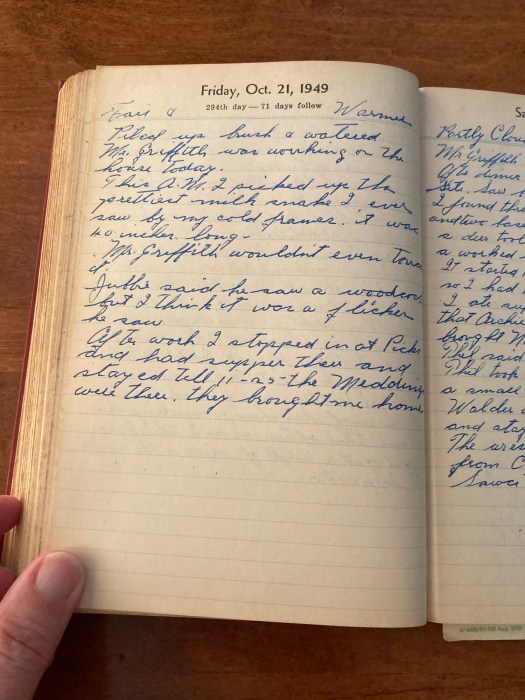 Friday, Oct. 21, 1949
294th day — 71 days follow
Fair & Warmer
Piled up brush & watered
Mr. Griffith was working on the
house today.
This A.M. I picked up the
prettiest milk snake I ever
saw by my cold frames. it was
40 inches long-
Mr. Griffith wouldn't even touch
it
said he saw a woodcock
but I think it was a flicker
he saw
After work I stopped in at Picks
and had supper there and
stayed till 11-25- the
were there. they brought me home
Sa
Partly Clou
Mr Griffith
After dinner
Saw
I found thr
and two
a deer
a worked
It started
so I had
I ate su
that Archie
brought
Phil said
Phil took
a small
Walder
and stay
The
from C